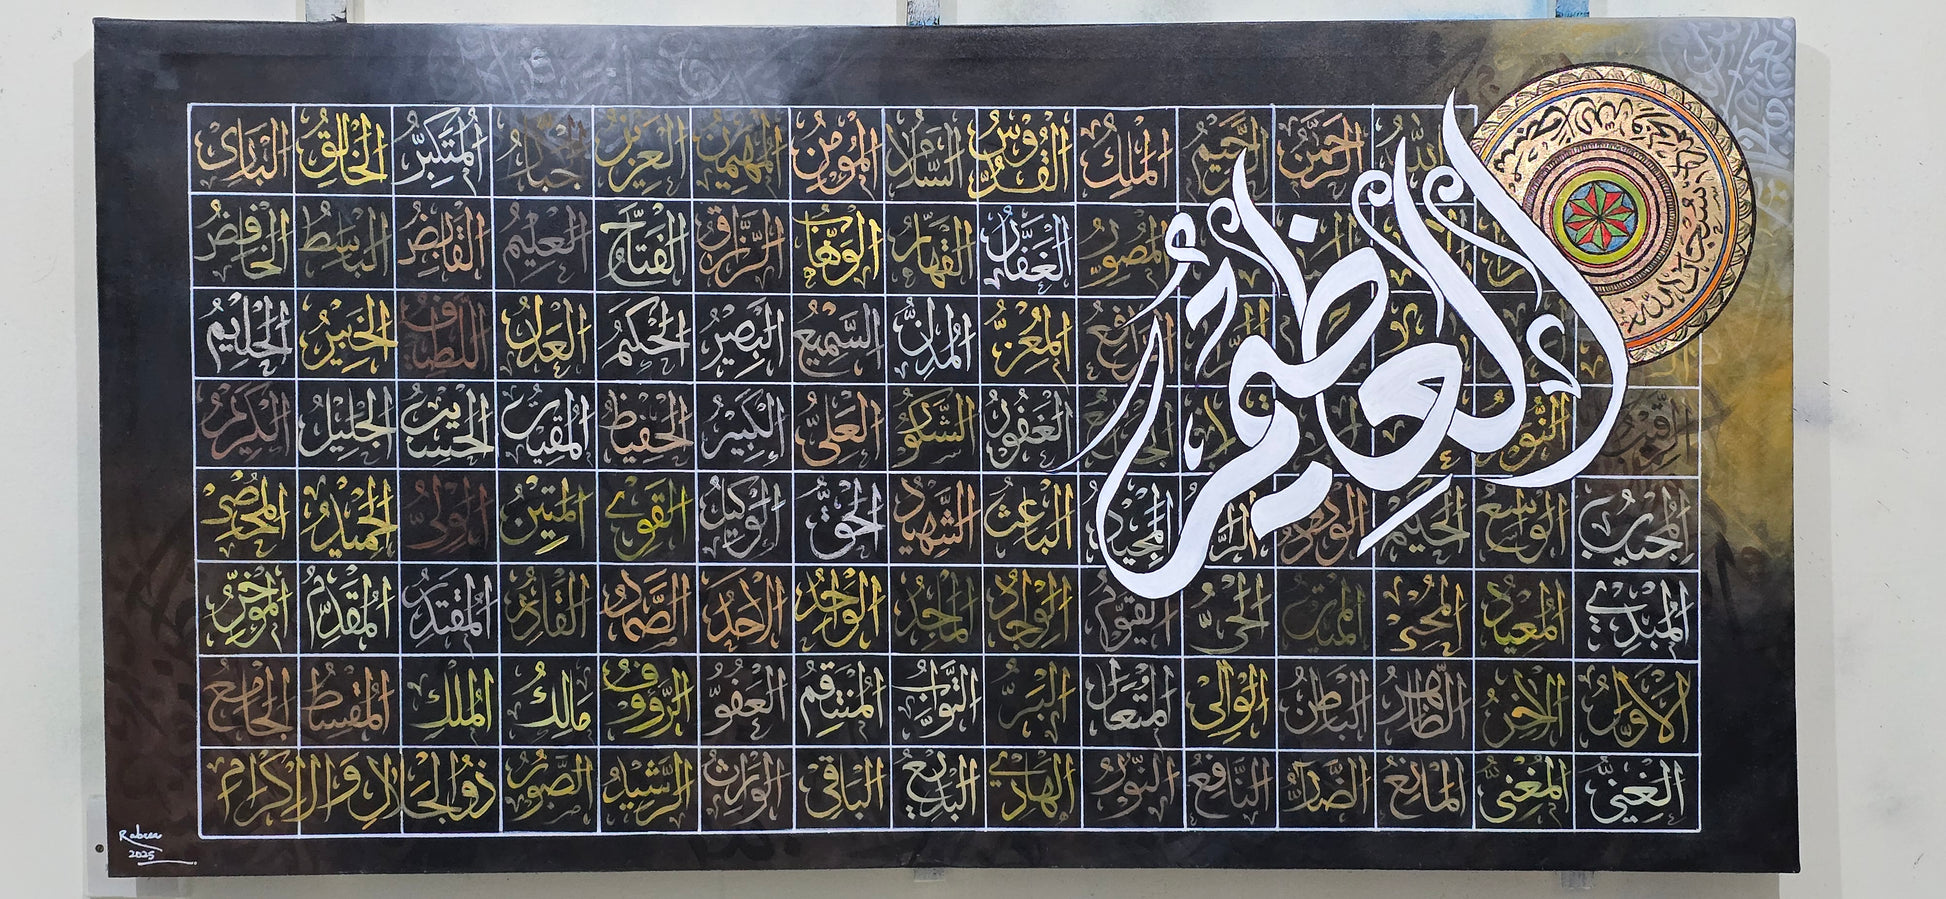 العظيم
سبحان الله
الله الرحمن الرحيم الملك القدوس السلام المؤمن المهيمن العزيز جبار المتكبر الخالق البارئ
المصور الغفار القهار الوهاب الرزاق الفتاح العليم القابض الباسط الخافض
الرافع المعز المذل السميع البصير الحكم العدل اللطيف الخبير الحليم
الرقيب النور الغفور الشكور العلي الكبير الحفيظ المقيت الحسيب الجليل الكريم
المجيب الواسع الحكيم الودود المجيد الباعث الشهيد الحق الوكيل القوي المتين الولي الحميد المحصي
المبدئ المعيد المحيي المميت الحي القيوم الواجد الماجد الواحد الاحد الصمد القادر المقتدر المقدم المؤخر
الأول الآخر الظاهر الباطن الوالي المتعال البر التواب المنتقم العفو الرؤوف مالك الملك المقسط الجامع
الغني المغني المانع الضار النافع النور الهادي البديع الباقي الوارث الرشيد الصبور ذو الجلال والإكرام
Rabeea
2025